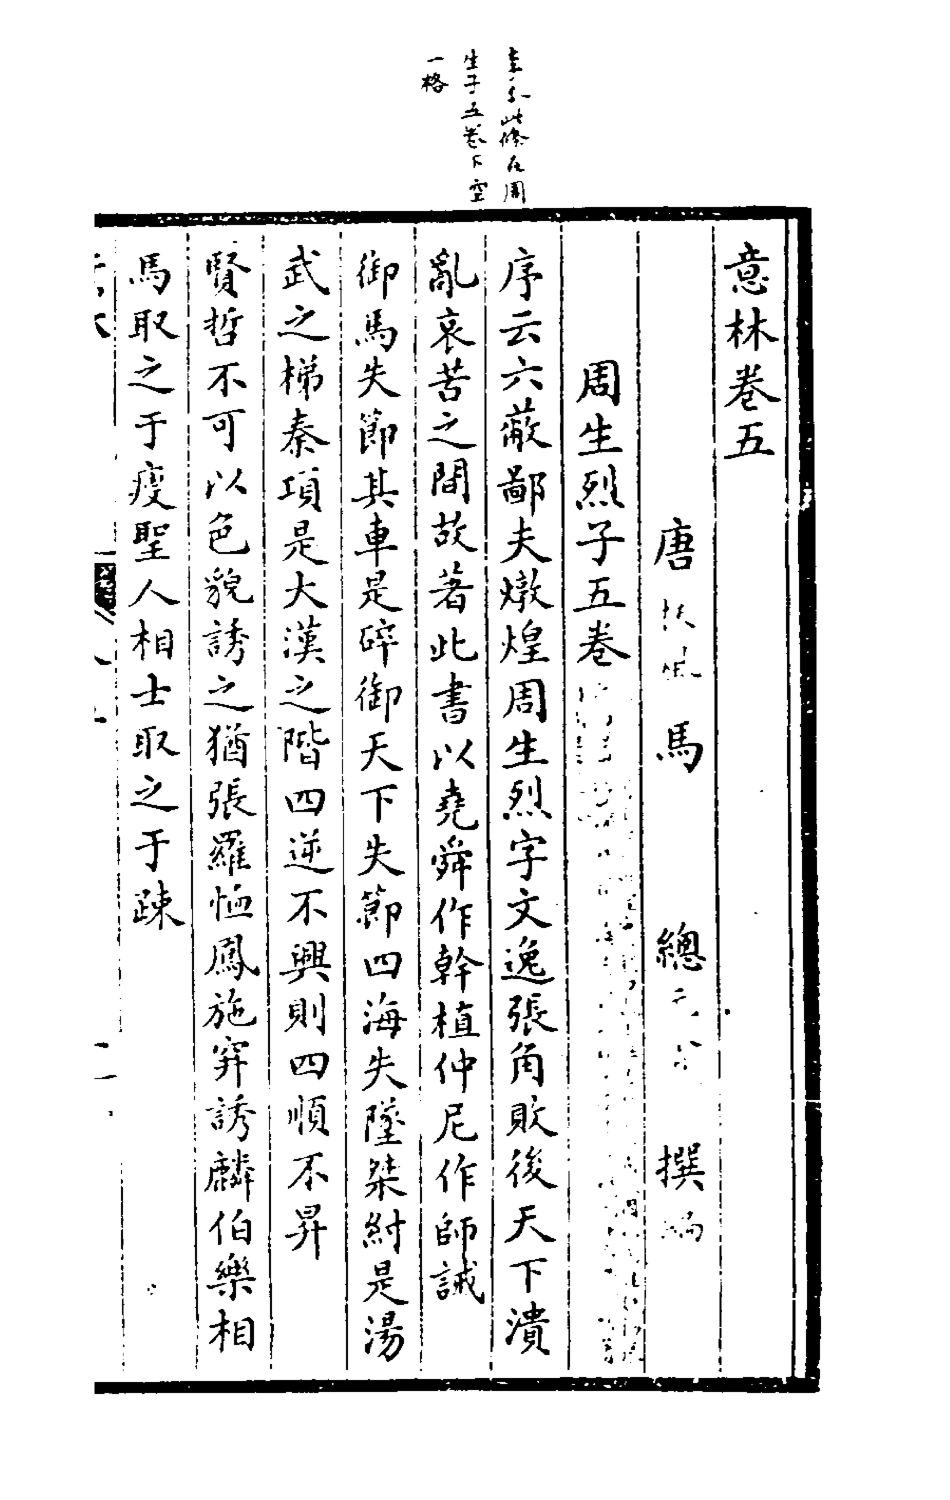 意林卷五
唐 馬 總 撰
周生烈子五卷
序云六蔽鄙夫燉煌周生烈字文逸張角敗後天下潰
亂哀苦之間故著此書以堯舜作幹植仲尼作師誡
御馬失節其車是碎御天下失節四海失墜桀紂是湯
武之梯秦項是大漢之階四逆不興則四順不昇
賢哲不可以色貌誘之猶張羅恤鳳施穽誘麟伯樂相
馬取之于瘦聖人相士取之于疎
此條在周
生子五卷下空
一格